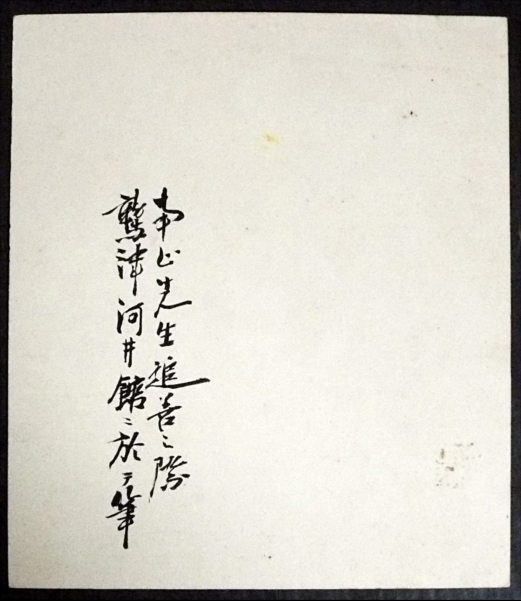 南山先生追善之際
鷲津河井館ニ於テ筆